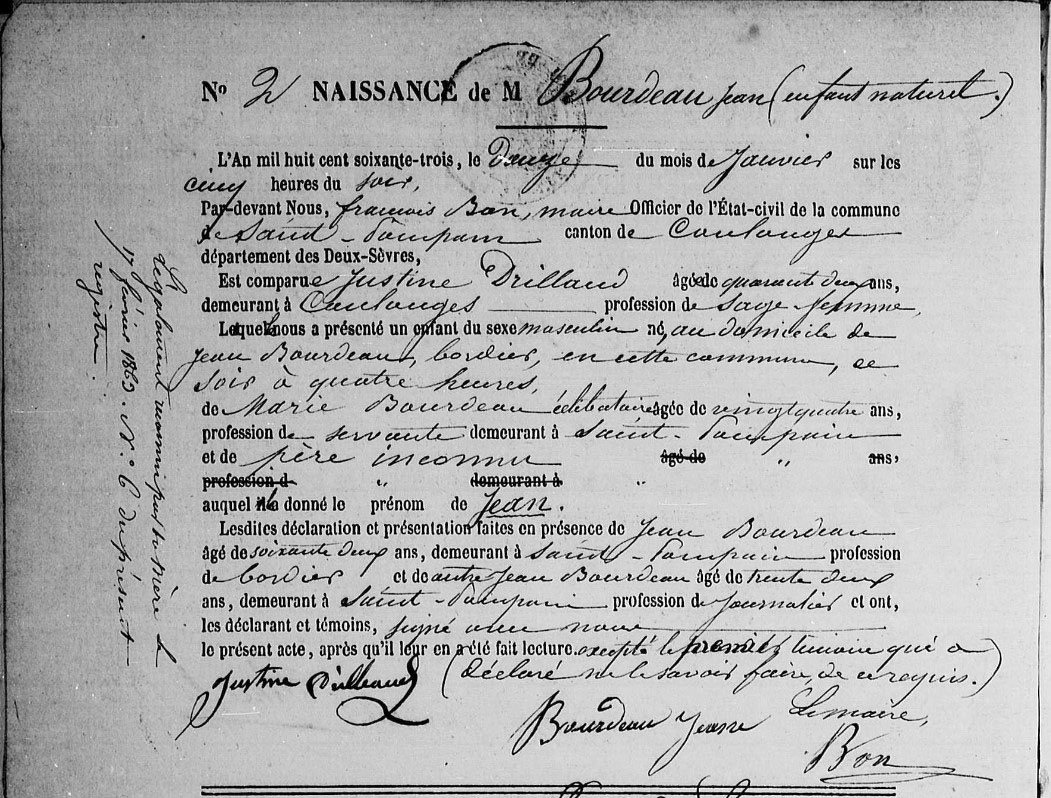 Nº 2 NAISSANCE de M Bourdeau jean (enfant naturel.)
L'An mil huit cent soixante-trois, le Douze du mois de Janvier sur les
cinq heures du soir,
Par-devant Nous, francois Bon, maire Officier de l'État-civil de la commune
de Saint-Pompain canton de Coulonges
département des Deux-Sèvres,
Est comparue Justine Drillaud âgée de quarante deux ans,
demeurant à Coulonges profession de sage-femme,
Laquelle nous a présenté un enfant du sexe masculin né, au domicile de
Jean Bourdeau, bordier, en cette commune, ce
soir à quatre heures,
de Marie Bourdeau célibataire âgée de vingt quatre ans,
profession de servante demeurant à Saint-Pompain
et de père inconnu âgé de " ans,
profession d " demeurant à "
auquel il a donné le prénom de Jean.
Lesdites déclaration et présentation faites en présence de Jean Bourdeau
âgé de soixante deux ans, demeurant à Saint-Pompain profession
de bordier et de autre Jean Bourdeau âgé de trente deux
ans, demeurant à Saint-Pompain profession de journalier et ont,
les déclarant et témoins, signé avec nous
le présent acte, après qu'il leur en a été fait lecture. excepté le premier témoin qui a
(déclaré ne le savoir faire, de ce requis.)
Justine Drillaud
Bourdeau Jean
Le maire,
Bon
reconnu par sa mère le
17 février 1863. N.º 6 du présent
registre.